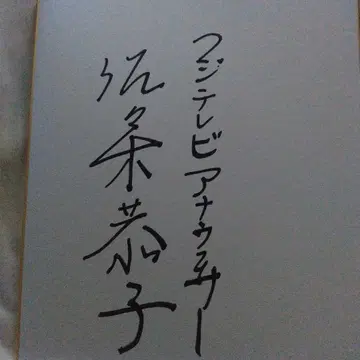 フジテレビアナウンサー
佐々木恭子